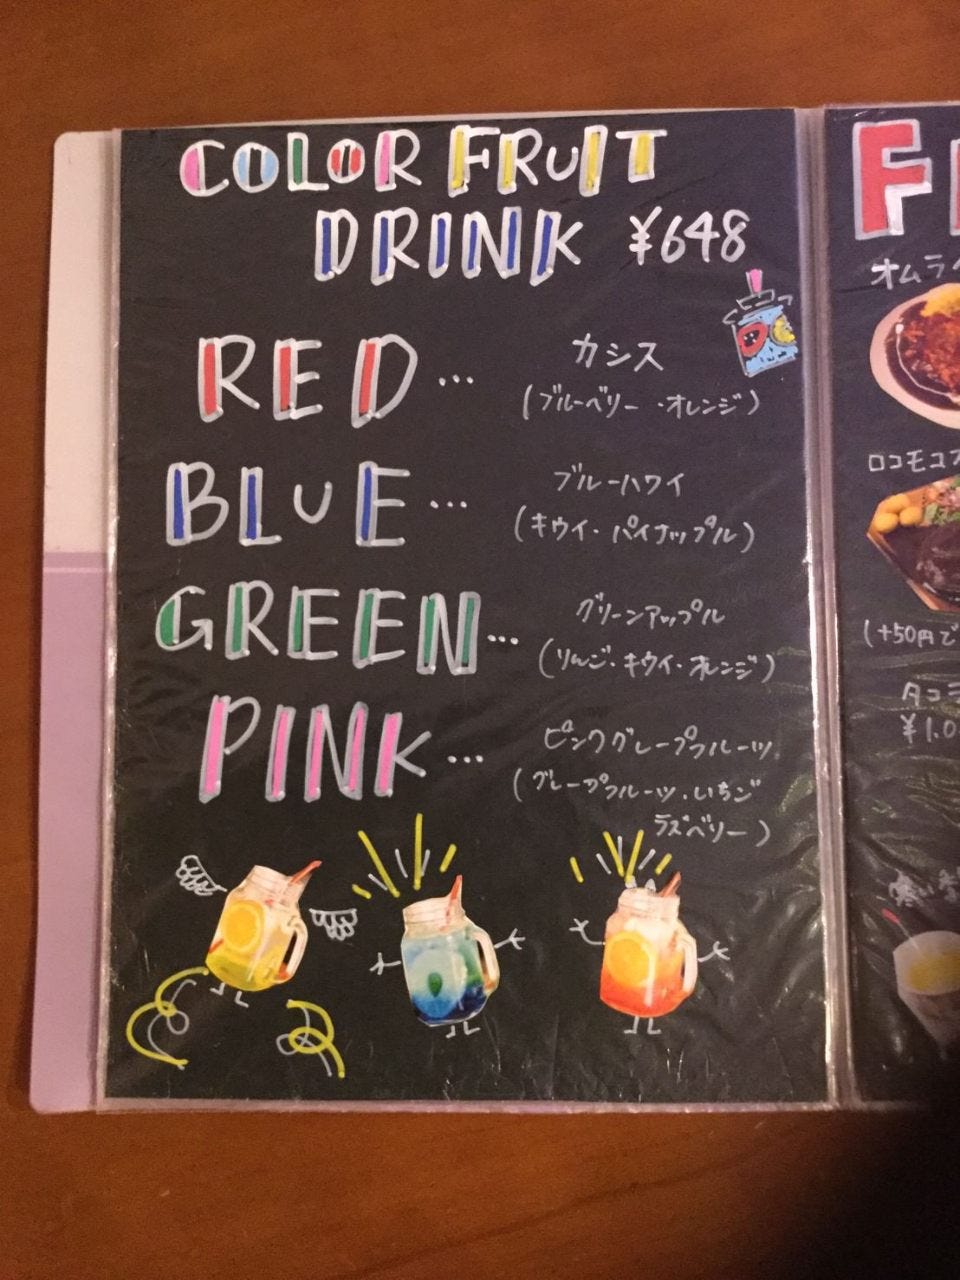 COLOR FRUIT
DRINK ¥648
RED… カシス
(ブルーベリー・オレンジ)
BLUE… ブルーハワイ
(キウイ・パイナップル)
GREEN… グリーンアップル
(りんご・キウイ・オレンジ)
PINK… ピンクグレープフルーツ
(グレープフルーツ・いちご
ラズベリー)
F
オムラ
ロコモコ
(+50円で
タコラ
¥1.0